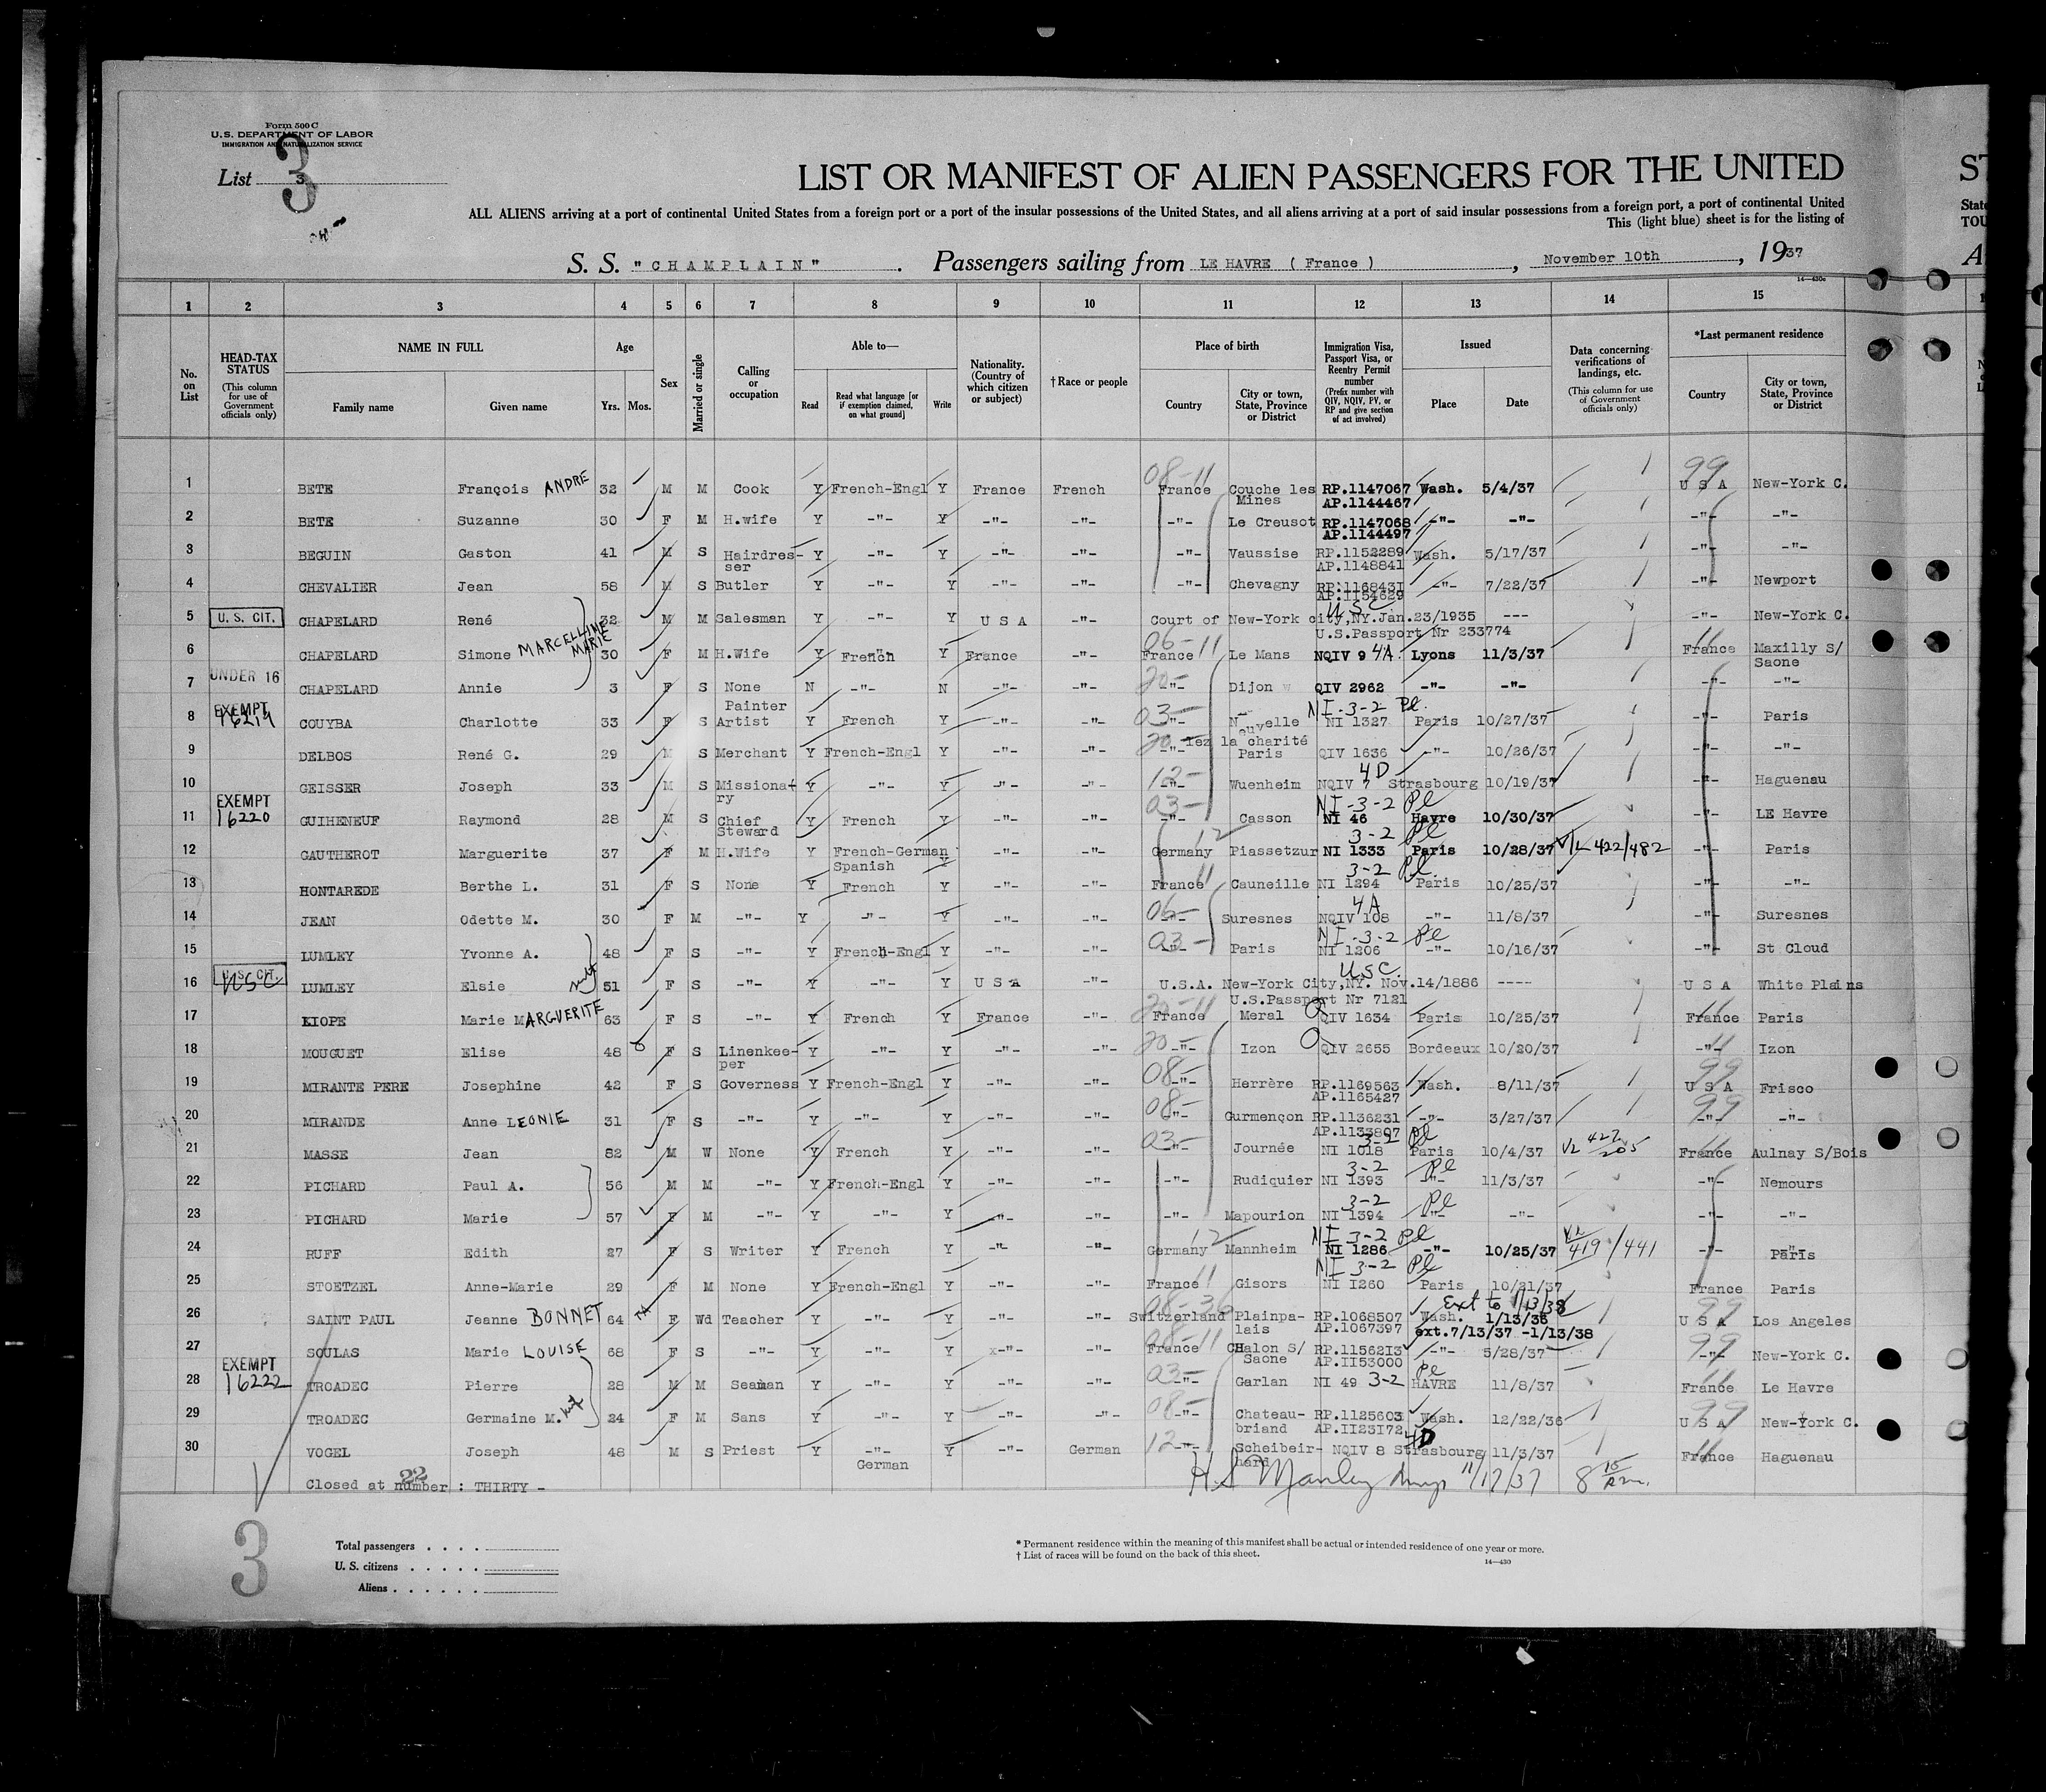 Form 500 C
U.S. DEPARTMENT OF LABOR
IMMIGRATION AND NATURALIZATION SERVICE
List 3
3
LIST OR MANIFEST OF ALIEN PASSENGERS FOR THE UNITED
ST
ALL ALIENS arriving at a port of continental United States from a foreign port or a port of the insular possessions of the United States, and all aliens arriving at a port of said insular possessions from a foreign port, a port of continental United
This (light blue) sheet is for the listing of
S. S. "CHAMPLAIN" . Passengers sailing from LE HAVRE ( France ) , November 10th , 1937
14—430c
1 2 3 4 5 6 7 8 9 10 11 12 13 14 15
No. on List
HEAD-TAX STATUS (This column for use of Government officials only)
NAME IN FULL
Family name Given name
Age
Yrs. Mos.
Sex
Married or single
Calling or occupation
Able to—
Read Read what language [or if exemption claimed, on what ground] Write
Nationality. (Country of which citizen or subject)
†Race or people
Place of birth
Country City or town, State, Province or District
Immigration Visa, Passport Visa, or Reentry Permit number (Prefix number with QIV, NQIV, PV, or RP and give section of act involved)
Issued
Place Date
Data concerning verifications of landings, etc. (This column for use of Government officials only)
*Last permanent residence
Country City or town, State, Province or District
1 BETE François ANDRE 32 M M Cook Y French-Engl Y France French 08-11 France Couche les Mines RP.1147067 AP.1144467 Wash. 5/4/37 99 U S A New-York C.
2 BETE Suzanne 30 F M H.wife Y -"- Y -"- -"- -"- Le Creusot RP.1147068 AP.1144497 -"- -"- -"- -"-
3 BEGUIN Gaston 41 M S Hairdresser Y -"- Y -"- -"- -"- Vaussise RP.1152289 AP.1148841 Wash. 5/17/37 -"- -"-
4 CHEVALIER Jean 58 M S Butler Y -"- Y -"- -"- -"- Chevagny RP.1168431 AP.1154629 -"- 7/22/37 -"- Newport
5 U. S. CIT. CHAPELARD René 32 M M Salesman Y -"- Y U S A -"- Court of New-York city,NY.Jan.23/1935 USC U.S.Passport Nr 233774 --- -"- New-York C.
6 CHAPELARD Simone MARCELLINE MARIE 30 F M H.Wife Y French Y France -"- 06-11 France Le Mans NQIV 9 4A Lyons 11/3/37 France Maxilly S/ Saone
7 UNDER 16 CHAPELARD Annie 3 F S None N -"- N -"- -"- 20- -"- Dijon QIV 2962 -"- -"- -"- -"-
8 EXEMPT 16219 COUYBA Charlotte 33 F S Painter Artist Y French Y -"- -"- 03- -"- Nouvelle lez la charité NI-3-2 Pl. NI 1327 Paris 10/27/37 -"- Paris
9 DELBOS René G. 29 M S Merchant Y French-Engl Y -"- -"- 20- -"- Paris QIV 1636 -"- 10/26/37 -"- -"-
10 GEISSER Joseph 33 M S Missionary Y -"- Y -"- -"- 12- -"- Wuenheim NQIV 7 4D Strasbourg 10/19/37 -"- Haguenau
11 EXEMPT 16220 GUIHENEUF Raymond 28 M S Chief Steward Y French Y -"- -"- 03- -"- Casson NI-3-2 Pl NI 46 Havre 10/30/37 -"- LE Havre
12 GAUTHEROT Marguerite 37 F M H.Wife Y French-German Spanish Y -"- -"- 12 Germany Piassetzur 3-2 Pl NI 1333 Paris 10/28/37 V/L 422/482 -"- Paris
13 HONTAREDE Berthe L. 31 F S None Y French Y -"- -"- France 11 Cauneille 3-2 Pl. NI 1294 Paris 10/25/37 -"- -"-
14 JEAN Odette M. 30 F M -"- Y -"- Y -"- -"- 06- -"- Suresnes 4A NQIV 108 -"- 11/8/37 -"- Suresnes
15 LUMLEY Yvonne A. 48 F S -"- Y French-Engl Y -"- -"- 03- -"- Paris NI-3-2 Pl NI 1206 -"- 10/16/37 -"- St Cloud
16 U. S. CIT. USC LUMLEY Elsie 51 F S -"- Y -"- Y U S A -"- U.S.A. New-York City,NY. Nov.14/1886 USC. U.S.Passport Nr 7121 ---- U S A White Plains
17 KIOPE Marie MARGUERITE 63 F S -"- Y French Y France -"- 20-11 France Meral QIV 1634 Paris 10/25/37 France Paris
18 MOUGUET Elise 48 F S Linenkeeper Y -"- Y -"- -"- 20- -"- Izon QIV 2655 Bordeaux 10/20/37 -"- Izon
19 MIRANTE PERE Josephine 42 F S Governess Y French-Engl Y -"- -"- 08- -"- Herrère RP.1169563 AP.1165427 Wash. 8/11/37 99 U S A Frisco
20 MIRANDE Anne LEONIE 31 F S -"- Y -"- Y -"- -"- 08- -"- Gurmençon RP.1136231 AP.1133807 -"- 3/27/37 99 -"- -"-
21 MASSE Jean 82 M W None Y French Y -"- -"- 03- -"- Journée 3-2 Pl NI 1018 Paris 10/4/37 France Aulnay S/Bois
22 PICHARD Paul A. 56 M M -"- Y French-Engl Y -"- -"- -"- Rudiquier 3-2 Pl NI 1393 -"- 11/3/37 -"- Nemours
23 PICHARD Marie 57 F M -"- Y -"- Y -"- -"- -"- Mapourion 3-2 Pl NI 1394 -"- -"- -"- -"-
24 RUFF Edith 27 F S Writer Y French Y -"- -"- 12 Germany Mannheim NI-3-2 Pl NI 1286 -"- 10/25/37 VL 419/441 -"- Paris
25 STOETZEL Anne-Marie 29 F M None Y French-Engl Y -"- -"- France 11 Gisors NI-3-2 Pl NI 1260 Paris 10/21/37 France Paris
26 SAINT PAUL Jeanne BONNET 64 F Wd Teacher Y -"- Y -"- -"- 08-36 Switzerland Plainpalais RP.1068507 AP.1067397 Ext to 1/13/38 Wash. 1/13/36 ext.7/13/37 -1/13/38 99 U S A Los Angeles
27 SOULAS Marie LOUISE 68 F S -"- Y -"- Y -"- -"- 08-11 France Chalon S/ Saone RP.1156213 AP.1153000 -"- 5/28/37 99 -"- New-York C.
28 EXEMPT 16222 TROADEC Pierre 28 M M Seaman Y -"- Y -"- -"- 03- -"- Garlan NI 49 3-2 Pl HAVRE 11/8/37 France Le Havre
29 TROADEC Germaine M. 24 F M Sans Y -"- Y -"- -"- 08- -"- Chateaubriand RP.1125603 AP.1123172 Wash. 12/22/36 99 U S A New-York C.
30 VOGEL Joseph 48 M S Priest Y -"- German Y -"- German 12- -"- Scheibeirhard NQIV 8 4D Strasbourg 11/3/37 France Haguenau
Closed at number : THIRTY -
22
H S Manley 11/17/37 8 15 A.m.
3
Total passengers . . . .
U. S. citizens . . . . .
Aliens . . . . . .
* Permanent residence within the meaning of this manifest shall be actual or intended residence of one year or more.
† List of races will be found on the back of this sheet.
14—430